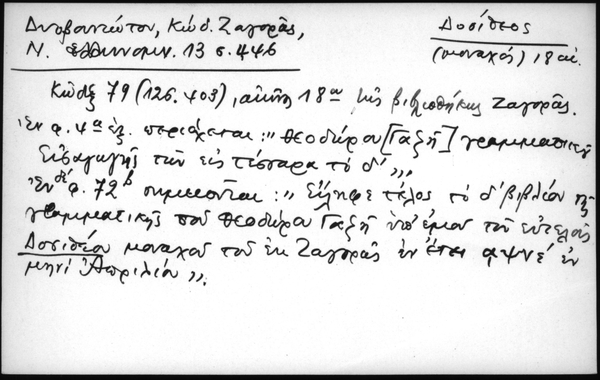 Δυοβουνιώτου, Κώδ. Ζαγορᾶς,
Ν. Ἑλληνομν. 13 σ. 446
Δοσίθεος
(μοναχός) 18 αἰ.
Κῶδιξ 79 (126. 403), αἰῶν 18α τῆς βιβλιοθήκης Ζαγορᾶς.
Ἐν φ. 4α περιέχεται: "Θεοδώρου [Γαζῆ] γραμματικῆς
Εἰσαγωγῆς τῶν εἰς τέσσαρα τὸ δ'",
Ἐν δὲ φ. 72β σημειοῦται: "Εἴληφε τέλος τὸ δ' βιβλίον τῆς
γραμματικῆς τοῦ Θεοδώρου Γαζῆ ὑπ' ἐμοῦ τοῦ εὐτελοῦς
Δοσιθέου μοναχοῦ τοῦ ἐκ Ζαγορᾶς ἐν ἔτει αψνέ ἐν
μηνὶ Ἀπριλίου".